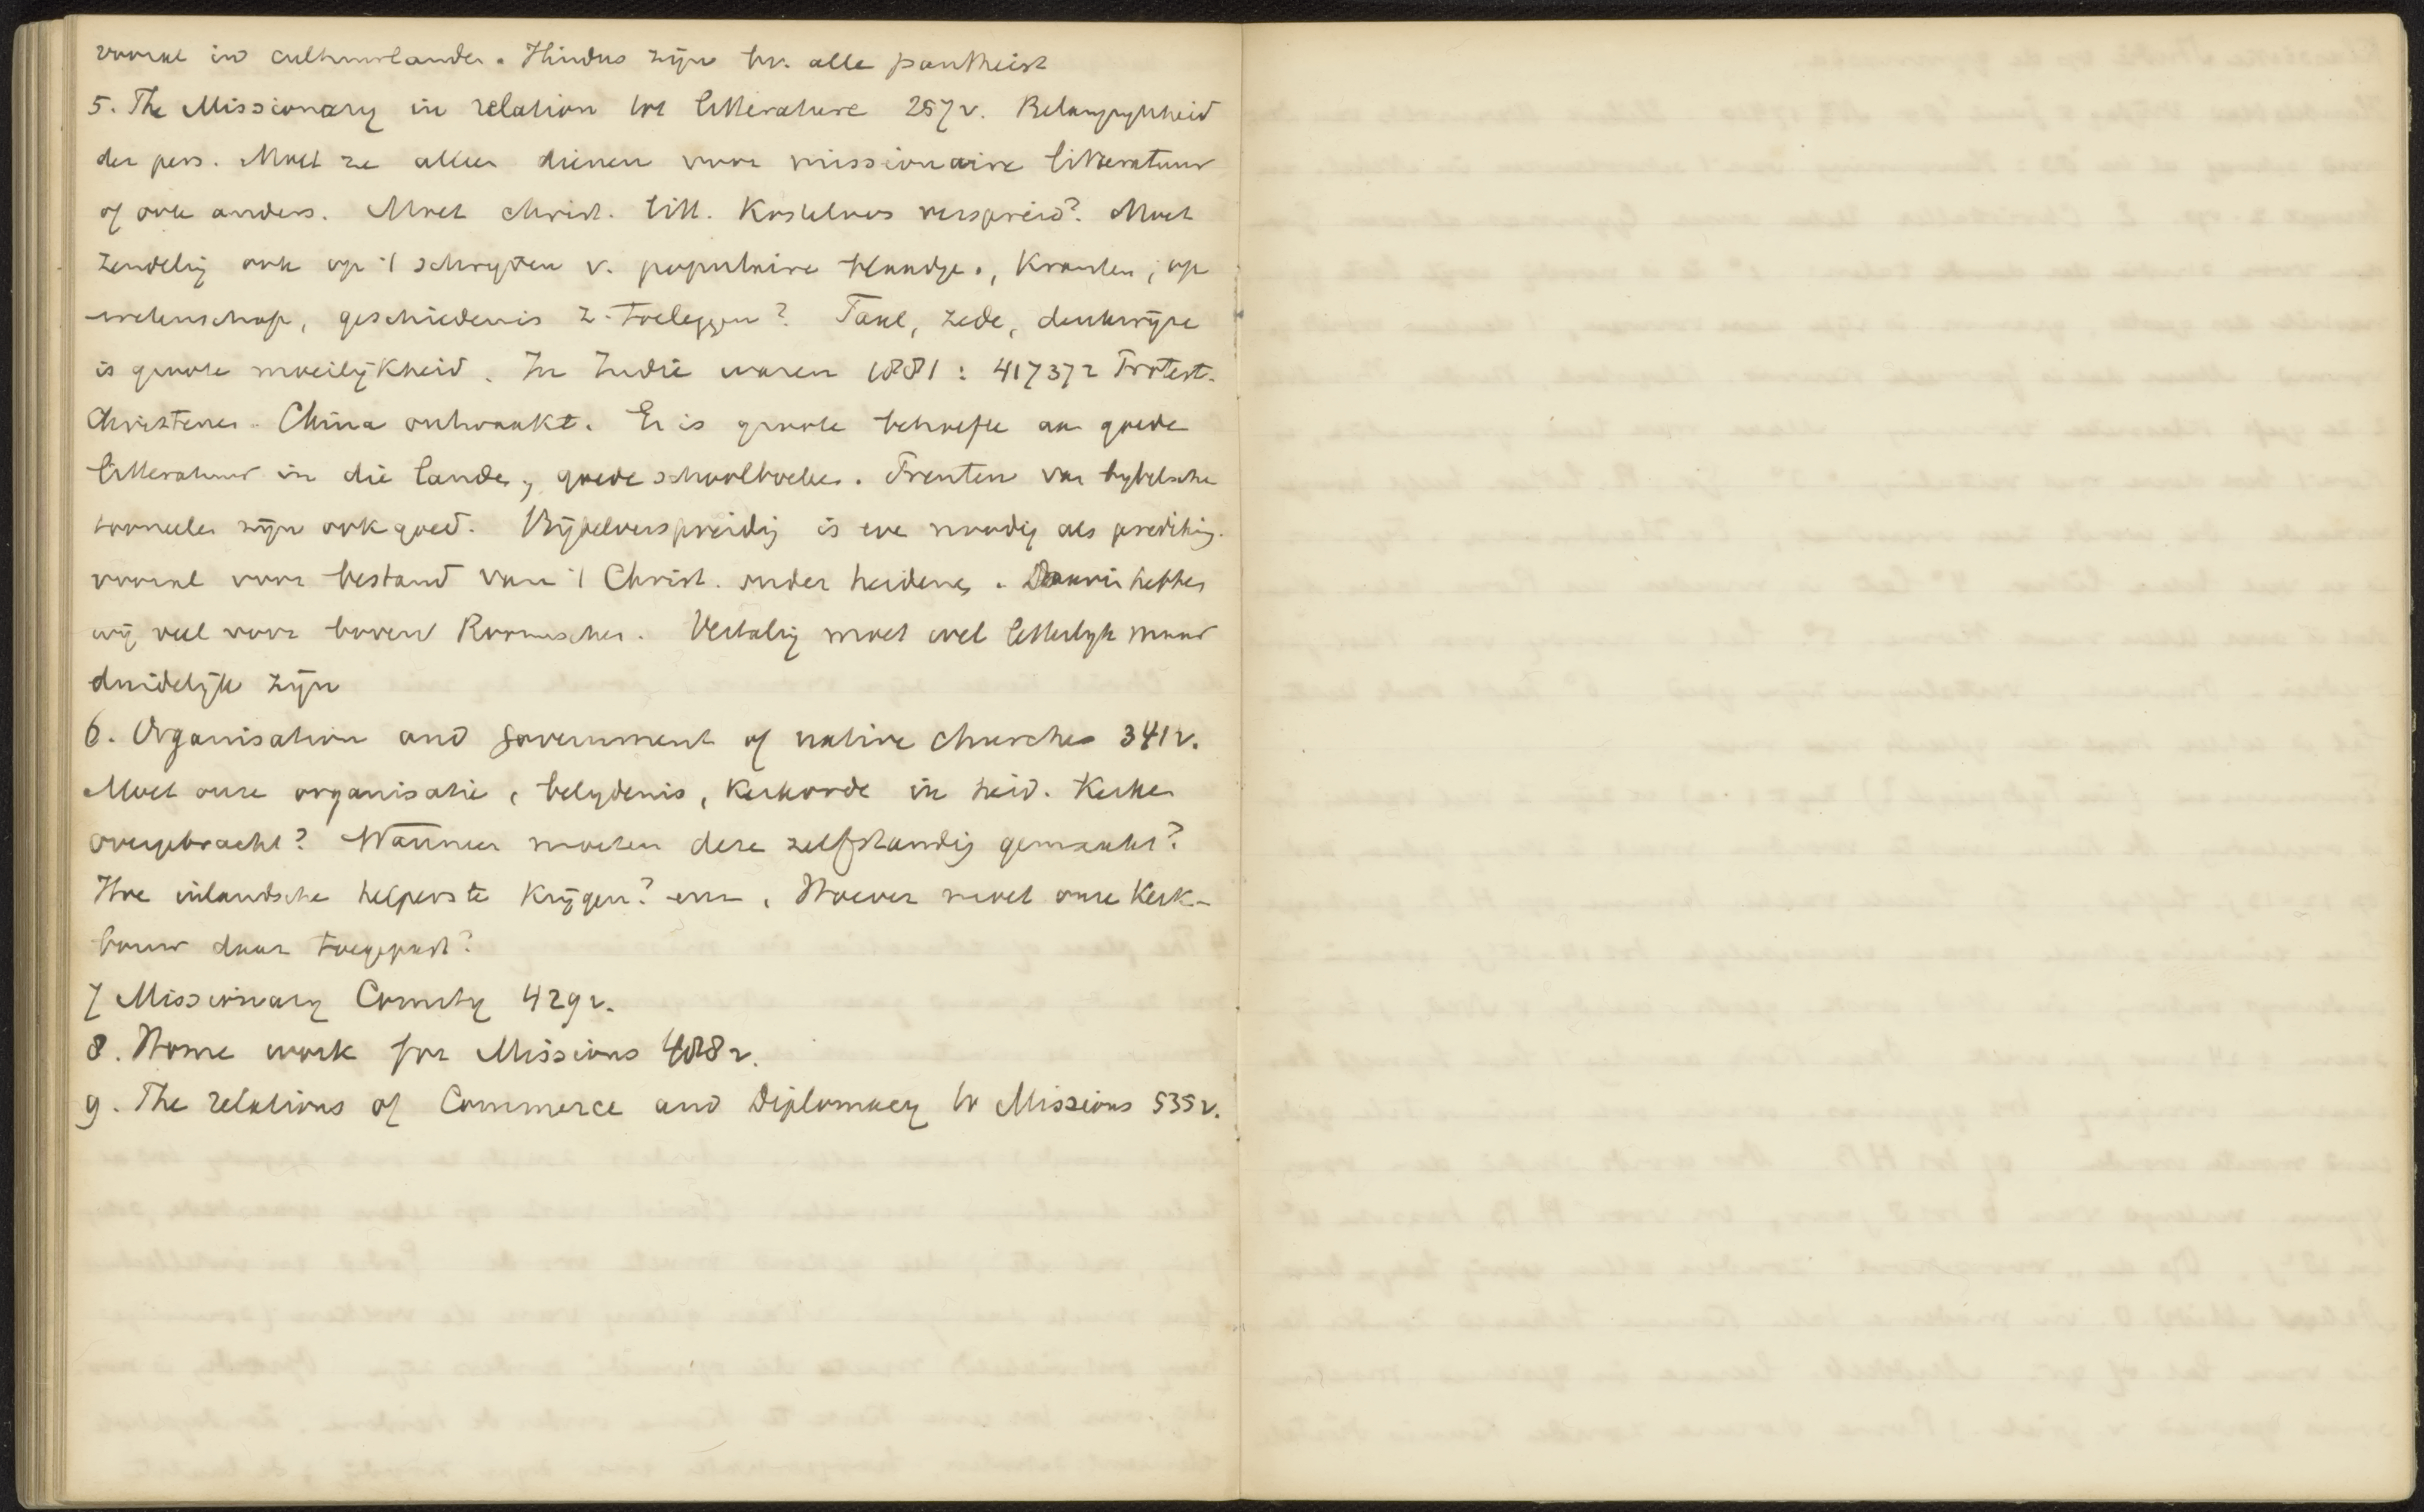 vooral in cultuurlanden. Hindus zijn bv. alle pantheist
5. The Missionary in relation tot litterature 257v. Belangrijkheid
der pers. Moet ze alleen dienen voor missionaire litteratuur
of ook anders. Moet christ. litt. kosteloos verspreid? Moet
zendeling ook op 't schrijven v. populaire blaadjes, kranten, op
wetenschap, geschiedenis z. toeleggen? Taal, zede, denkwijze
is groote moeilijkheid. In Indie waren 1881: 417372 Protest.
Christenen. China ontwaakt. Er is groote behoefte aan goede
litteratuur in die landen, goede schoolboeken. Prenten van bybelsche
tooneelen zijn ook goed. Bijbelverspreiding is even noodig als prediking.
vooral voor bestand van 't Christ. onder heidenen. Daarin hebben
wij veel voor boven Roomschen. Vertaling moet wel letterlijk maar
duidelijk zijn
6. Organisation and government of native churches 341v.
Moet onze organisatie, belydenis, Kerkorde in heid. Kerken
overgebracht? Wanneer moeten deze zelfstandig gemaakt?
Hoe inlandsche helpers te krijgen? enz. Hoever moet onze Kerk-
bouw daar toegepast?
7 Missionary Comity 429v.
8. Home work for Missions 488v.
9. The relations of Commerce and Diplomacy to Missions 535v.